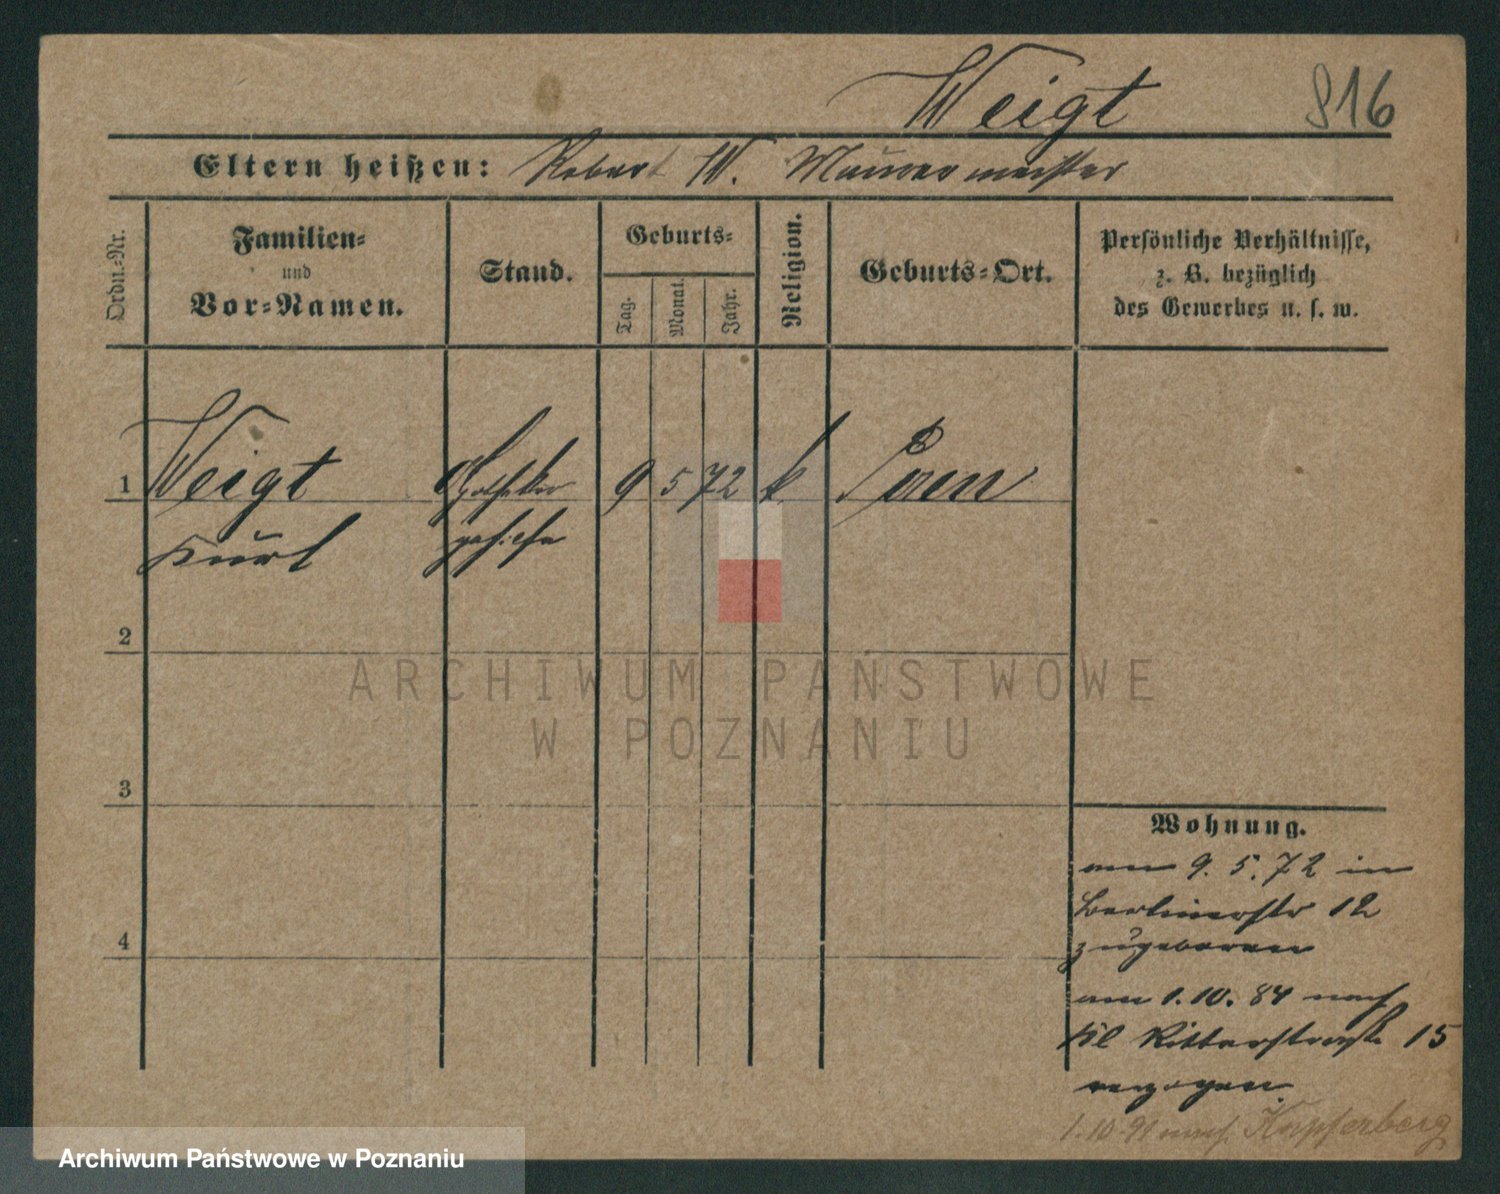 Weigt 816
Eltern heißen: Robert W. Maurermeister
Ordn.-Nr.
Familien-
und
Vor-Namen.
Stand.
Geburts-
Tag.
Monat.
Jahr.
Religion.
Geburts-Ort.
Persönliche Verhältnisse,
z. B. bezüglich
des Gewerbes u. s. w.
1 Weigt Apotheker 9 5 72 k Posen
Kurt
2
3
4
ARCHIWUM PAŃSTWOWE
W POZNANIU
Wohnung.
am 9. 5. 72 in
Berlinerstr 12
zugeboren
am 1. 10. 84 nach
Kl Ritterstraße 15
verzogen
1.10.91 nach Kupferberg
Archiwum Państwowe w Poznaniu